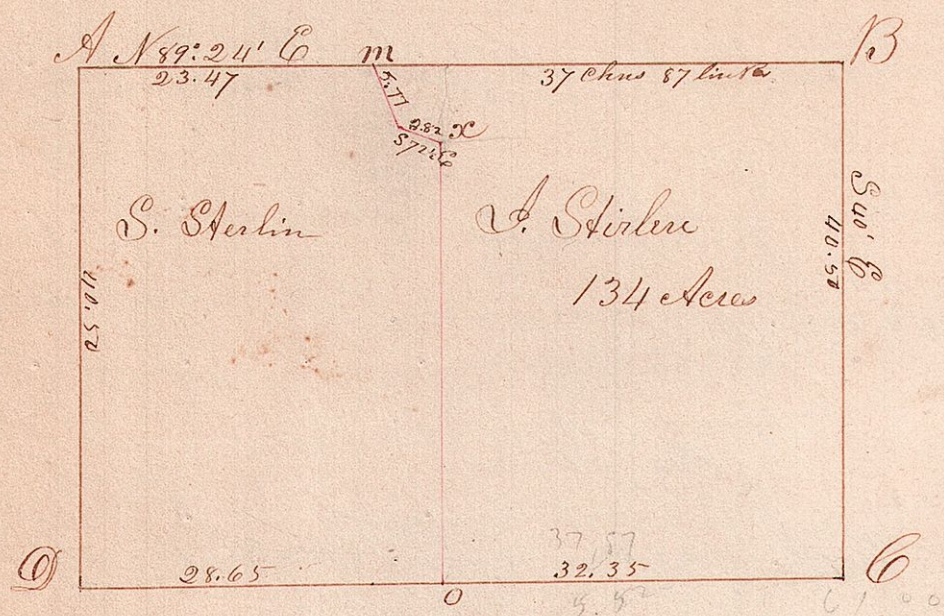 A N 89° 24' E m B
23.47 37 Chns 87 links
5.77
2.82 X
S 72½ E
S. Sterlin J. Stirlen
134 Acres
S 40' E
40.50
40.52
D 28.65 O 32.35 C
37,87